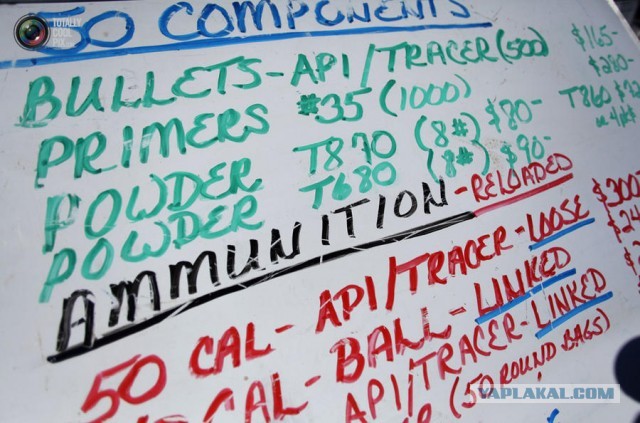 TOTALLY
COOL
PIX
50 COMPONENTS
BULLETS-API/TRACER (500) $165-
PRIMERS #35 (1000) $280-
POWDER T870 (8#) $80- T860
POWDER T680 (8#) $90-
AMMUNITION-RELOADED
50 CAL- API/TRACER-LOOSE
CAL-BALL-LINKED
API/TRACER-LINKED
(50 ROUND BAGS)
YAPLAKAL.COM